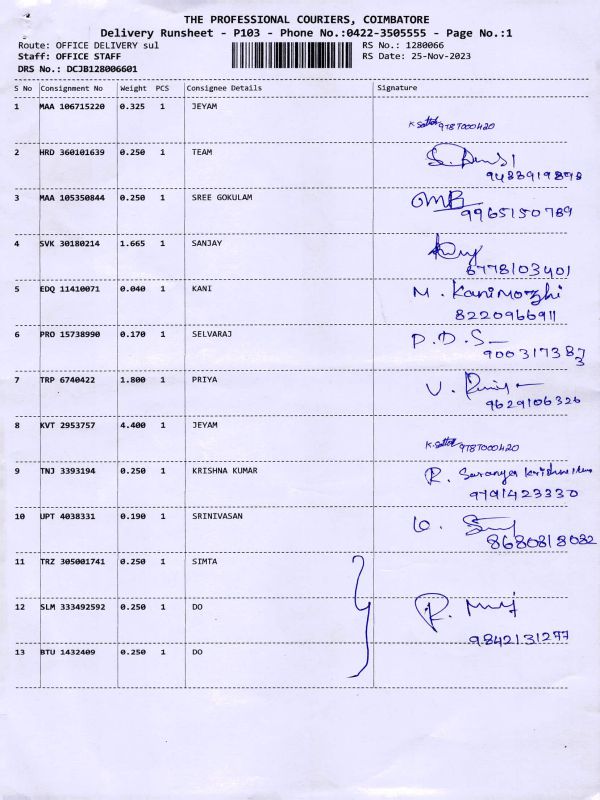 THE PROFESSIONAL COURIERS, COIMBATORE
Delivery Runsheet - P103 - Phone No.:0422-3505555 - Page No.:1
Route: OFFICE DELIVERY sul RS No.: 1280066
Staff: OFFICE STAFF RS Date: 25-Nov-2023
DRS No.: DCJB128006601
S No Consignment No Weight PCS Consignee Details Signature
1 MAA 106715220 0.325 1 JEYAM
2 HRD 360101639 0.250 1 TEAM
9488919898
3 MAA 105350844 0.250 1 SREE GOKULAM
9965150789
4 SVK 30180214 1.665 1 SANJAY
6778103401
5 EDQ 11410071 0.040 1 KANI M. Kanimozhi
8220966911
6 PRO 15738990 0.170 1 SELVARAJ P.D.S
900317387
3
7 TRP 6740422 1.800 1 PRIYA V.
9629106326
8 KVT 2953757 4.400 1 JEYAM
9 TNJ 3393194 0.250 1 KRISHNA KUMAR R. Saranya
9791423330
10 UPT 4038331 0.190 1 SRINIVASAN
8680818082
11 TRZ 305001741 0.250 1 SIMTA
12 SLM 333492592 0.250 1 DO R.
9842131277
13 BTU 1432409 0.250 1 DO